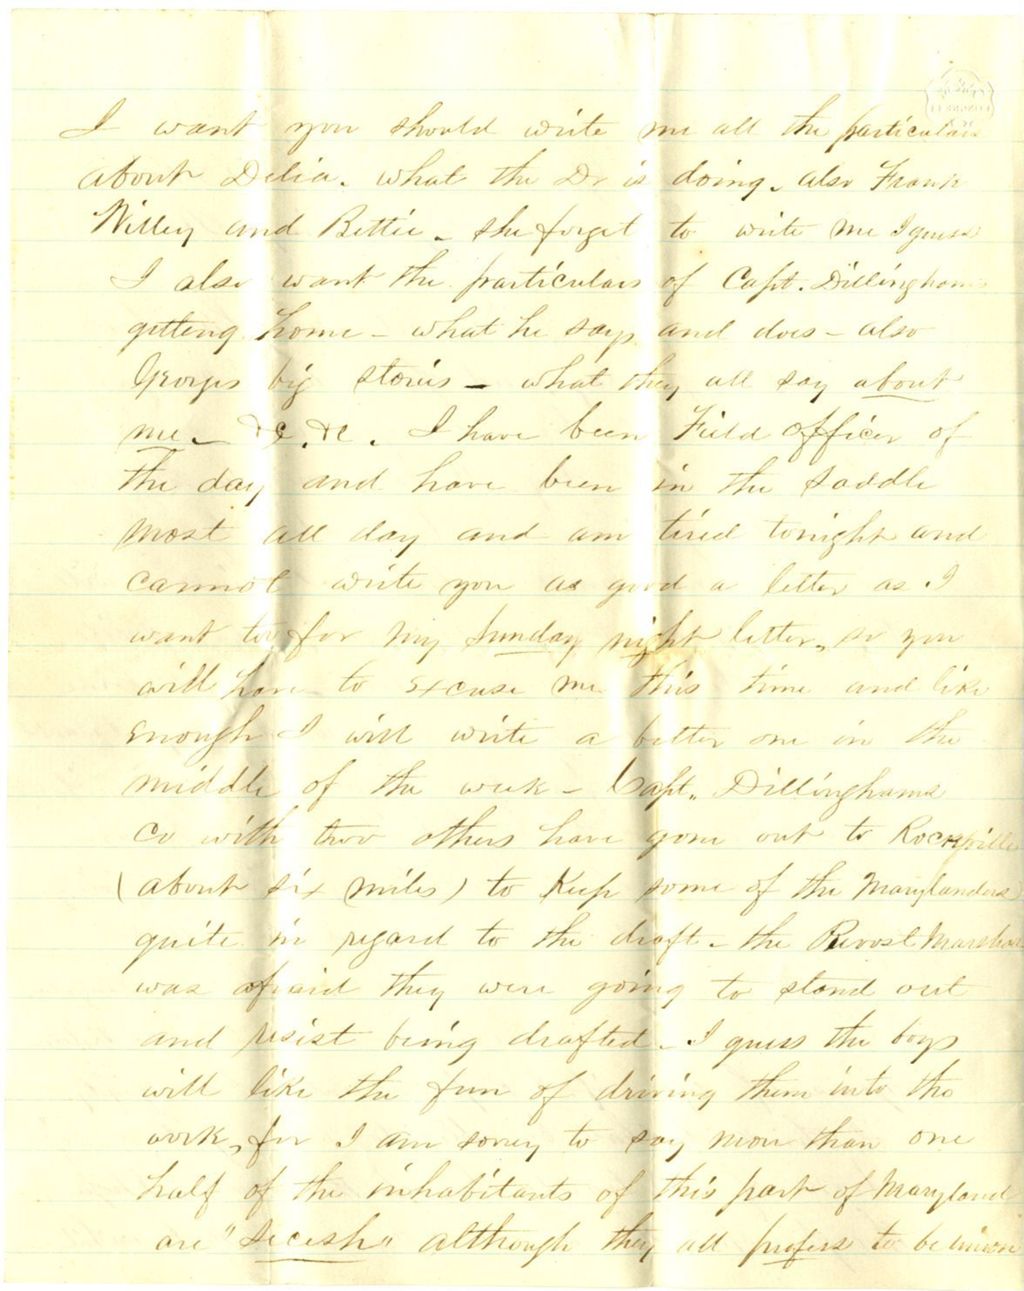 I want you should write me all the particulars
about Delia. what the Dr is doing. also Frank
Willey and Bettie - she forget to write me I guess
I also want the particulars of Capt. Dillinghams
getting home - what he says and does - also
Georges big stories - what they all say about
me - &c. &c. I have been Field Officer of
the day and have been in the saddle
most all day and am tired tonight and
cannot write you as good a letter as I
want too for my Sunday night letter, so you
will have to excuse me this time and like
enough I will write a better one in the
middle of the week - Capt. Dillinghams
Co with two others have gone out to Rockville
(about six miles) to Keep some of the Marylanders
quite in regard to the draft - the Provost Marshal
was afraid they were going to stand out
and resist being drafted - I guess the boys
will like the fun of driving them into the
work, for I am sorry to say more than one
half of the inhabitants of this part of Maryland
are "Secesh" although they all profess to be union